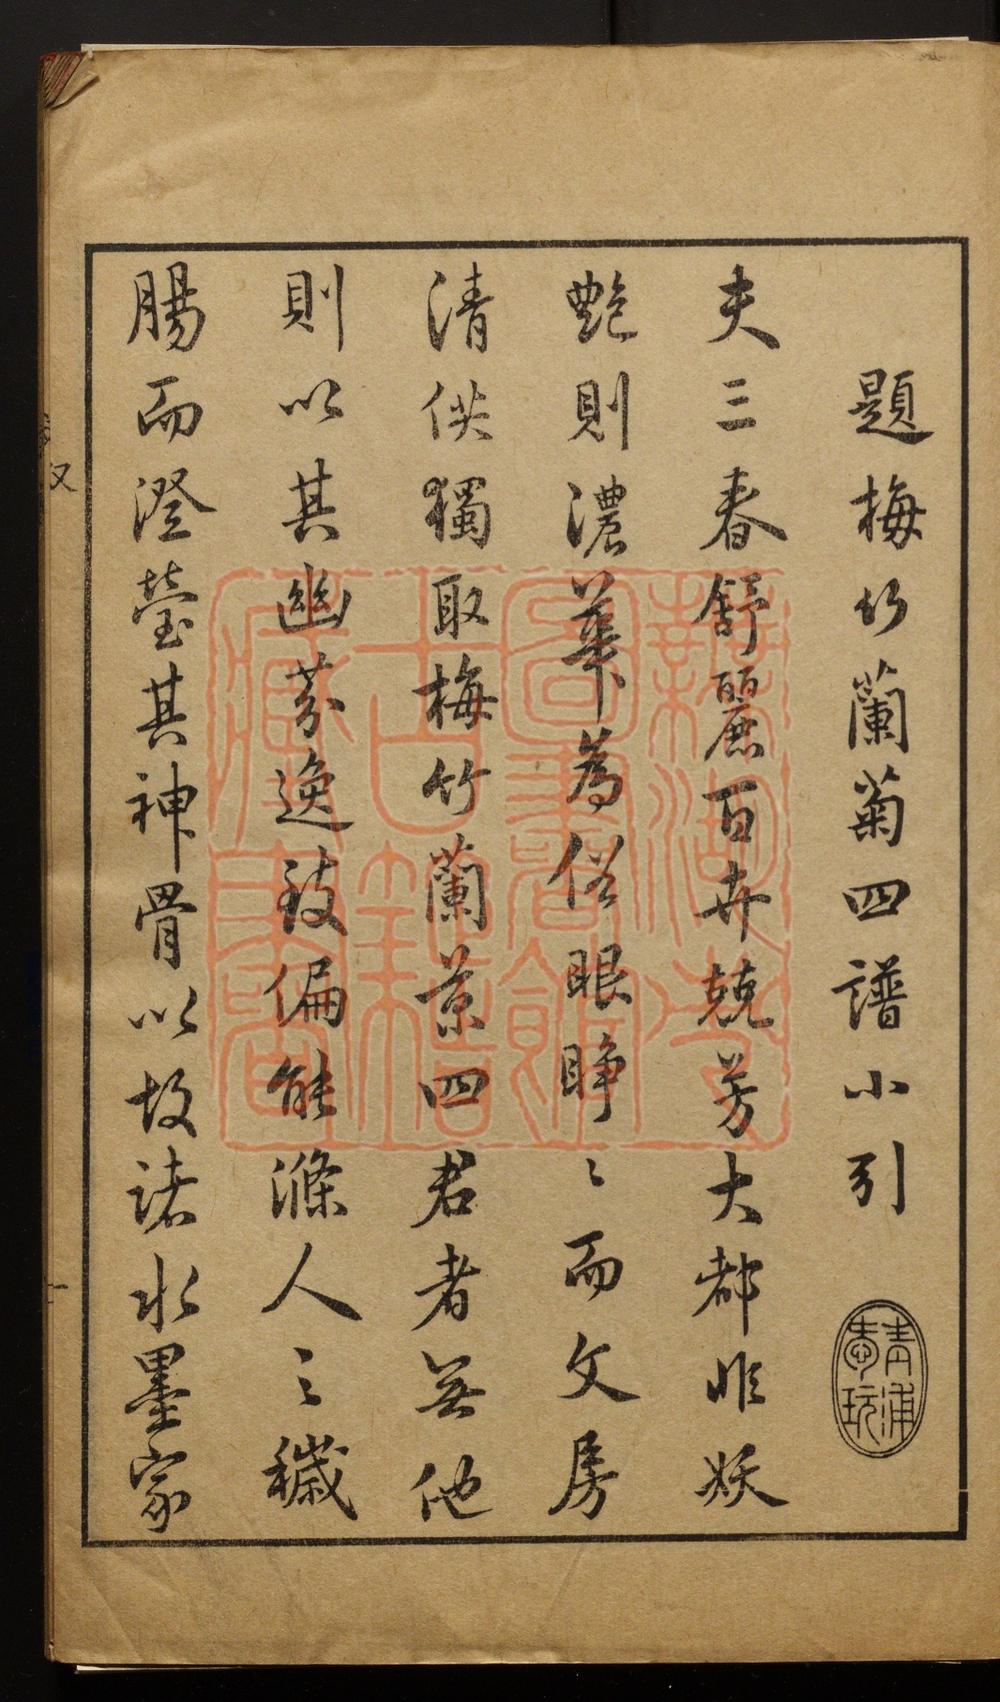 題梅竹蘭菊四譜小引
青浦
夫三春舒麗百卉兢芳大都非妖
艶則濃華為俗眼睜〻而文房
清供獨取梅竹蘭菊四君者無他
則以其幽芬逸致偏能滌人之穢
腸而澄瑩其神骨以故諸水墨家
古籍
藏書